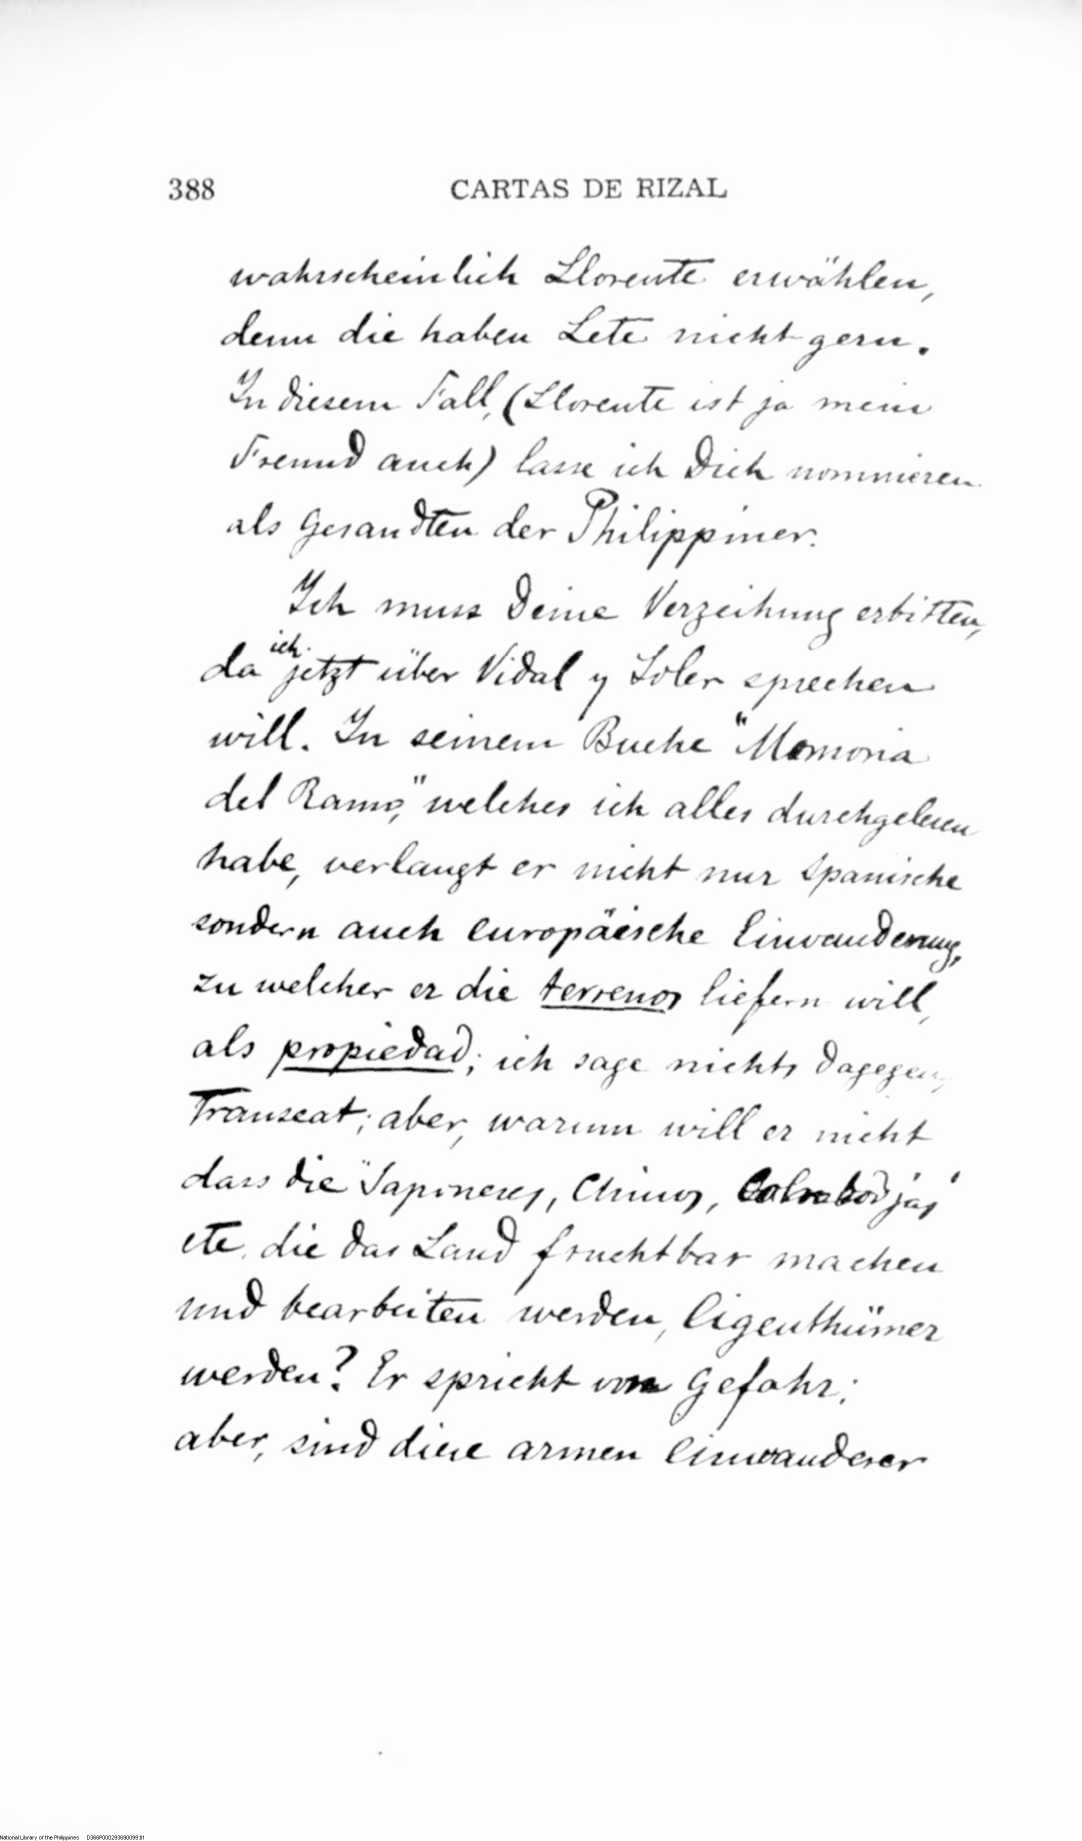 388 CARTAS DE RIZAL
wahrscheinlich Llorente erwählen,
denn die haben Lete nicht gern.
In diesem Fall, (Llorente ist ja mein
Freund auch) lasse ich Dich nommieren
als Gesandten der Philippiner.
Ich muss Deine Verzeihung erbitten,
da ich jetzt über Vidal y Soler sprechen
will. In seinem Buche "Memoria
del Ramo," welches ich alles durchgelesen
habe, verlangt er nicht nur Spanische
sondern auch europäische Einwanderung,
zu welcher er die terrenos liefern will,
als propiedad; ich sage nichts dagegen,
Transeat; aber, warum will er nicht
dass die "Japoneses, Chinos,
etc. die das Land fruchtbar machen
und bearbeiten werden, Eigenthümer
werden? Er spricht von Gefahr;
aber, sind diese armen Einwanderer
National Library of the Philippines